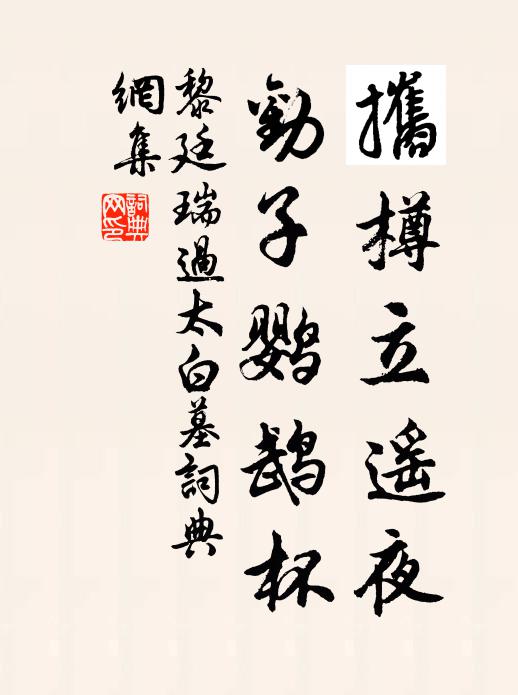 攜樽立遥夜
勸子鹦鹉杯
黎廷瑞過太白墓詞典
網集
詞典网印